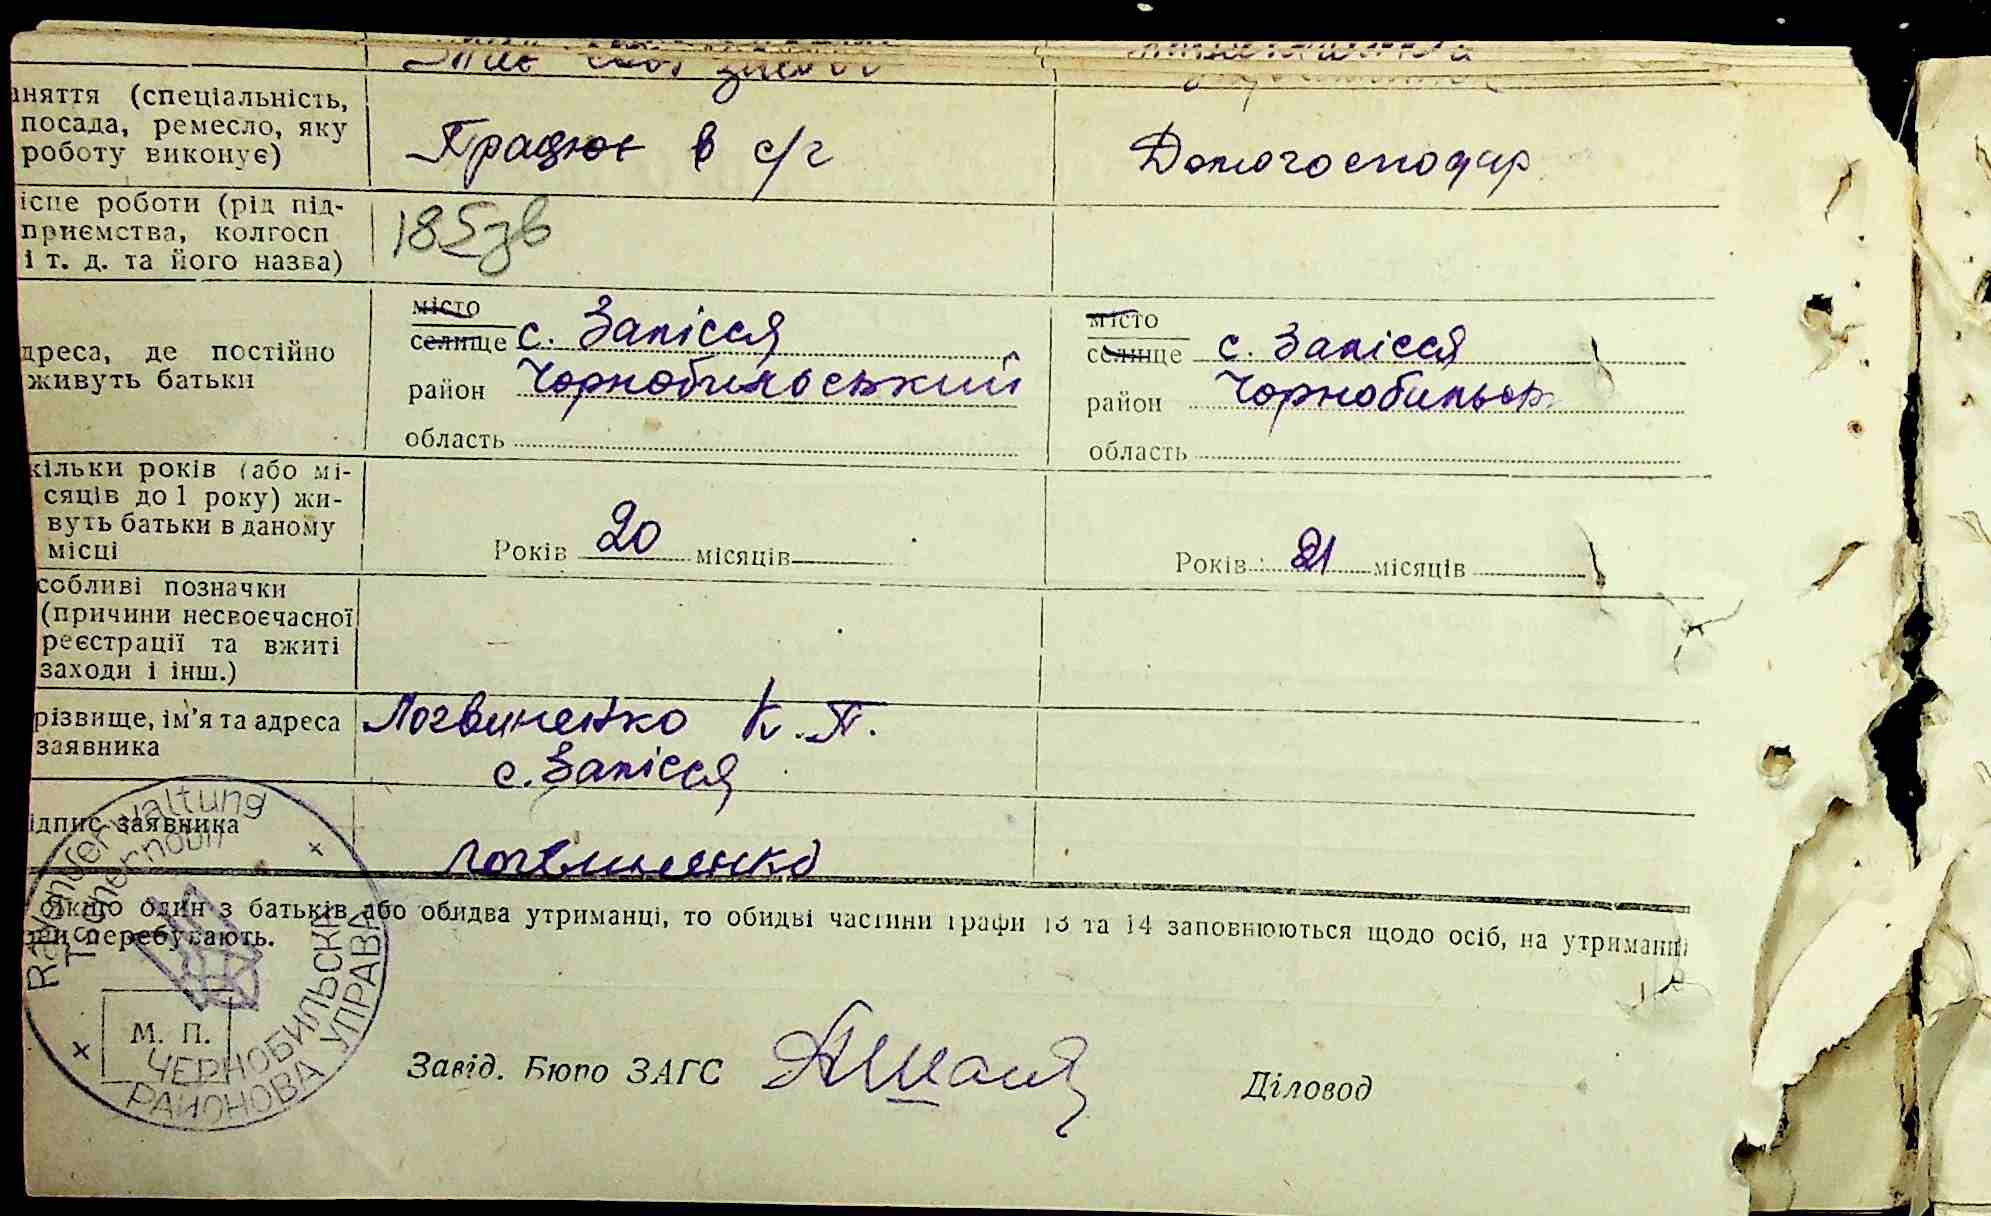 має свої
аняття (спеціальність,
посада, ремесло, яку
роботу виконує)
Працює в с/г
Домогосподар
ісце роботи (рід під-
приємства, колгосп
і т. д. та його назва)
185зв
дреса, де постійно
живуть батьки
місто
селище с. Запісся
район Чорнобильський
область
місто
селище с. Запісся
район Чорнобильськ
область
кільки років (або мі-
сяців до 1 року) жи-
вуть батьки в даному
місці
Років 20 місяців
Років 21 місяців
собливі позначки
(причини несвоєчасної
реєстрації та вжиті
заходи і інш.)
різвище, ім'я та адреса
заявника
Логвиненко К. П.
с. Запісся
ідпис заявника
Логвиненко
якщо один з батьків або обидва утриманці, то обидві частини графи 13 та 14 заповнюються щодо осіб, на утриманні
перебувають.
Rayonverwaltung
Tschernobil
ЧЕРНОБИЛЬСКА
РАЙОНОВА УПРАВА
М. П.
Завід. Бюро ЗАГС
Діловод